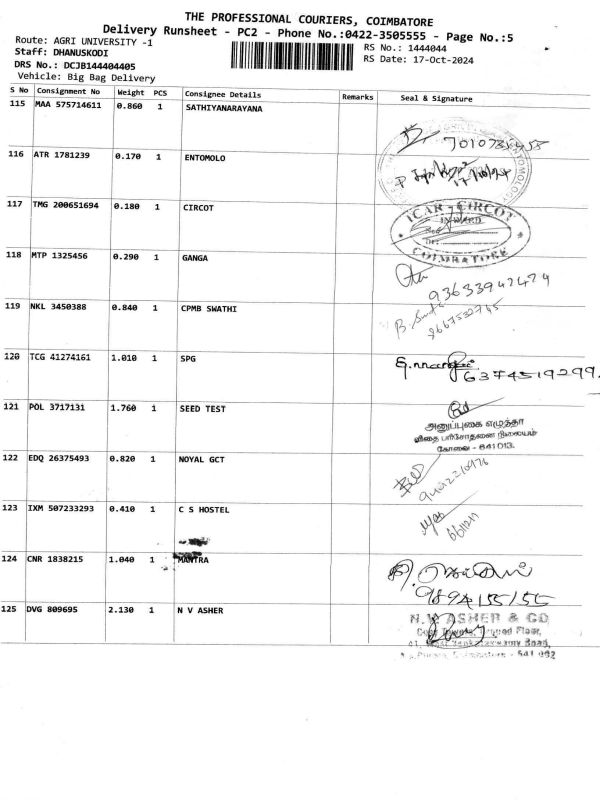 THE PROFESSIONAL COURIERS, COIMBATORE
Delivery Runsheet - PC2 - Phone No.:0422-3505555 - Page No.:5
Route: AGRI UNIVERSITY -1
RS No.: 1444044
Staff: DHANUSKODI
RS Date: 17-Oct-2024
DRS No.: DCJB144404405
Vehicle: Big Bag Delivery
S No Consignment No Weight PCS Consignee Details Remarks Seal & Signature
115 MAA 575714611 0.860 1 SATHIYANARAYANA
116 ATR 1781239 0.170 1 ENTOMOLO
ENTOMOLOGY
117 TMG 200651694 0.180 1 CIRCOT
ICAR - CIRCOT
INWARD
COIMBATORE
118 MTP 1325456 0.290 1 GANGA
9363394 2429
119 NKL 3450388 0.840 1 CPMB SWATHI
120 TCG 41274161 1.010 1 SPG
6374519299
121 POL 3717131 1.760 1 SEED TEST
அனுப்புகை எழுத்தர்
விதை பரிசோதனை நிலையம்
கோவை - 641 013.
122 EDQ 26375493 0.820 1 NOYAL GCT
123 IXM 507233293 0.410 1 C S HOSTEL
124 CNR 1838215 1.040 1 MANTRA
9894155155
125 DVG 809695 2.130 1 N V ASHER
N.V ASHER & CO